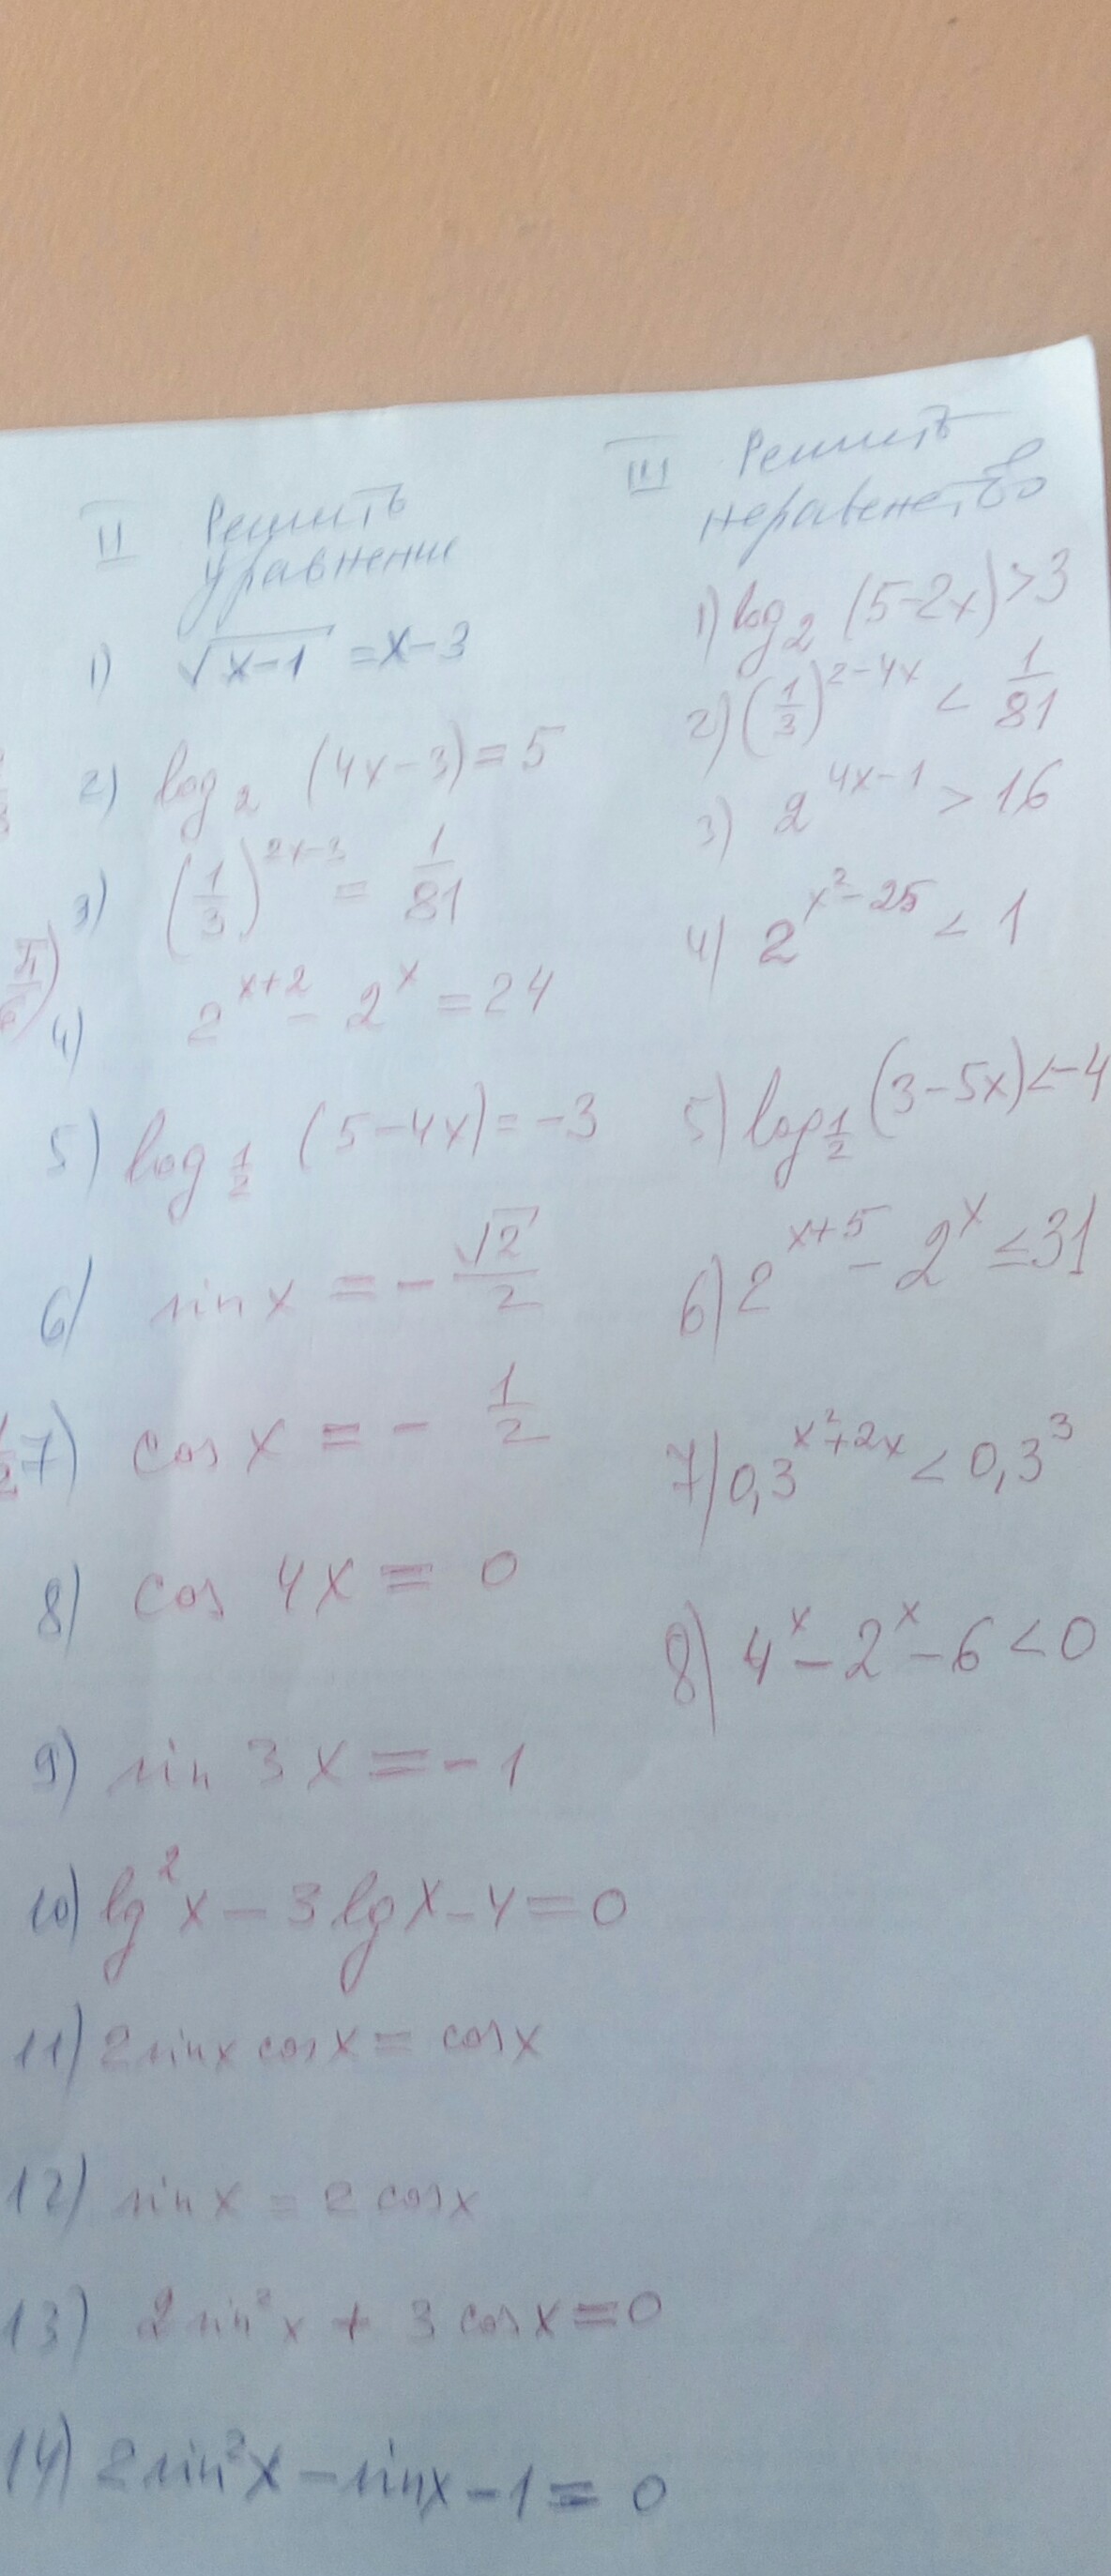 II Решить
уравнение
1) √(x-1) = x-3
2) log₂ (4x-3) = 5
3) (1/3)^(2x-3) = 1/81
4) 2^(x+2) - 2^x = 24
5) log_(1/2) (5-4x) = -3
6) sin x = - √2/2
7) cos x = - 1/2
8) cos 4x = 0
9) sin 3x = -1
10) lg²x - 3 lg x - 4 = 0
11) 2 sin x cos x = cos x
12) sin x = 2 cos x
13) 2 sin²x + 3 cos x = 0
14) 2 sin²x - sin x - 1 = 0
III Решить
неравенство
1) log₂ (5-2x) > 3
2) (1/3)^(2-4x) < 1/81
3) 2^(4x-1) > 16
4) 2^(x²-25) < 1
5) log_(1/2) (3-5x) < -4
6) 2^(x+5) - 2^x ≤ 31
7) 0,3^(x²+2x) < 0,3³
8) 4^x - 2^x - 6 < 0